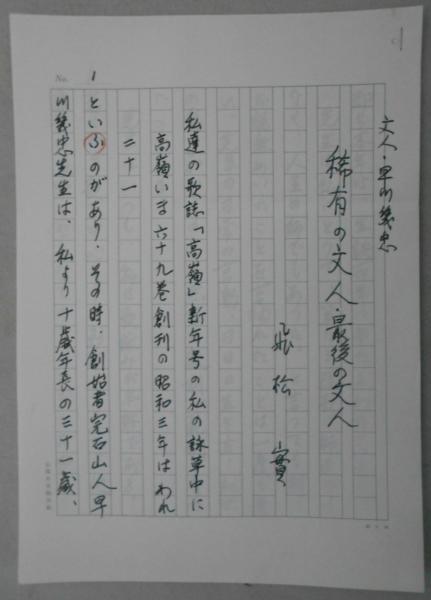 文人・早川幾忠
稀有の文人・最後の文人
飛松 實
私達の歌誌「高嶺」新年号の私の詠草中に
高嶺いま六十九巻創刊の昭和三年はわれ
二十一
といふのがあり、その時、創始者完石山人早
川幾忠先生は、私より十歳年長の三十一歳、
No. 1